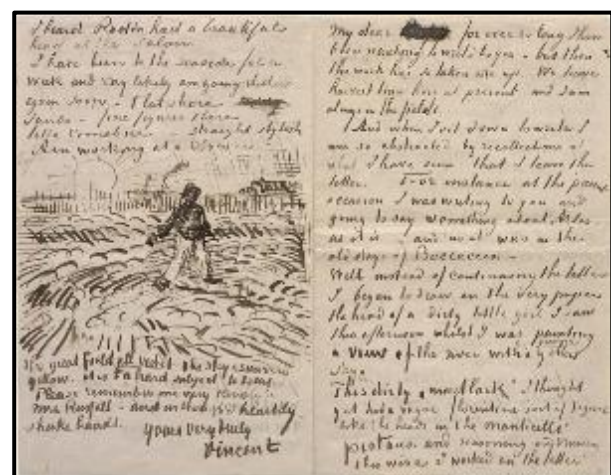 I heard Rodin had a beautiful
head at the Salon
I have been to the seaside for a
week and very likely am going thither
again soon. - Flat shore
sands - fine figures there
like Cimabue - straight stylish
Am working at a Sower
the great field all violet the sky & sun very
yellow. it is a hard subject to treat.
Please remember me very kindly
Mrs Russell - and in thought heartily
shake hands.
Yours very truly
Vincent
My dear for ever so long I have
been wanting to write to you - but then
the work has so taken me up. We have
harvest time here at present and I am
always in the fields.
And when I sit down to write I
am so abstracted by recollections of
what I have seen that I leave the
letter. For instance at the present
occasion I was writing to you and
going to say something about Arles
as it is - and as it was in the
old days of Boccaccio -
Well instead of continuing the letter
I began to draw on the very paper
the head of a dirty little girl I saw
this afternoon whilst I was painting
a view of the river with a
sky.
This dirty "mudlark" I thought
yet had a vague florentine sort of figure
like the heads in the monticelli
pictures, and reasoning and drawing
this wise I worked on the letter